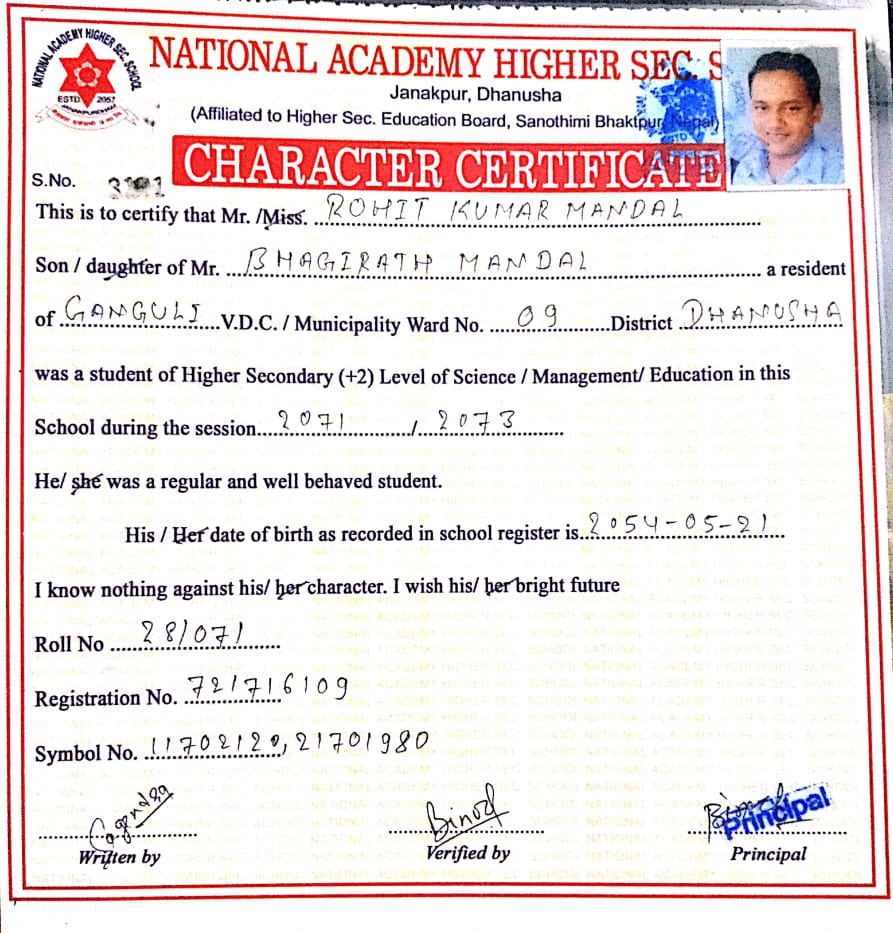 NATIONAL ACADEMY HIGHER SEC. SCHOOL
ESTD 2057
NATIONAL ACADEMY HIGHER SEC. S
Janakpur, Dhanusha
(Affiliated to Higher Sec. Education Board, Sanothimi Bhaktpur, Nepal)
CHARACTER CERTIFICATE
S.No.
This is to certify that Mr. /Miss. ROHIT KUMAR MANDAL
Son / daughter of Mr. BHAGIRATH MANDAL a resident
of GANGULI V.D.C. / Municipality Ward No. 09 District DHANUSHA
was a student of Higher Secondary (+2) Level of Science / Management/ Education in this
School during the session 2071 / 2073
He/ she was a regular and well behaved student.
His / Her date of birth as recorded in school register is 2054-05-21
I know nothing against his/ her character. I wish his/ her bright future
Roll No 28/071
Registration No. 721716109
Symbol No. 11702120, 21701980
Binod
Principal
Written by
Verified by
Principal